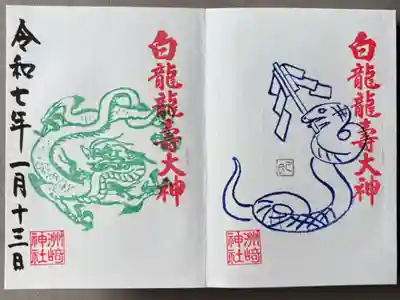 白龍龍寿大神
巳
洲崎
神社
白龍龍寿大神
令和七年一月十三日
洲崎
神社